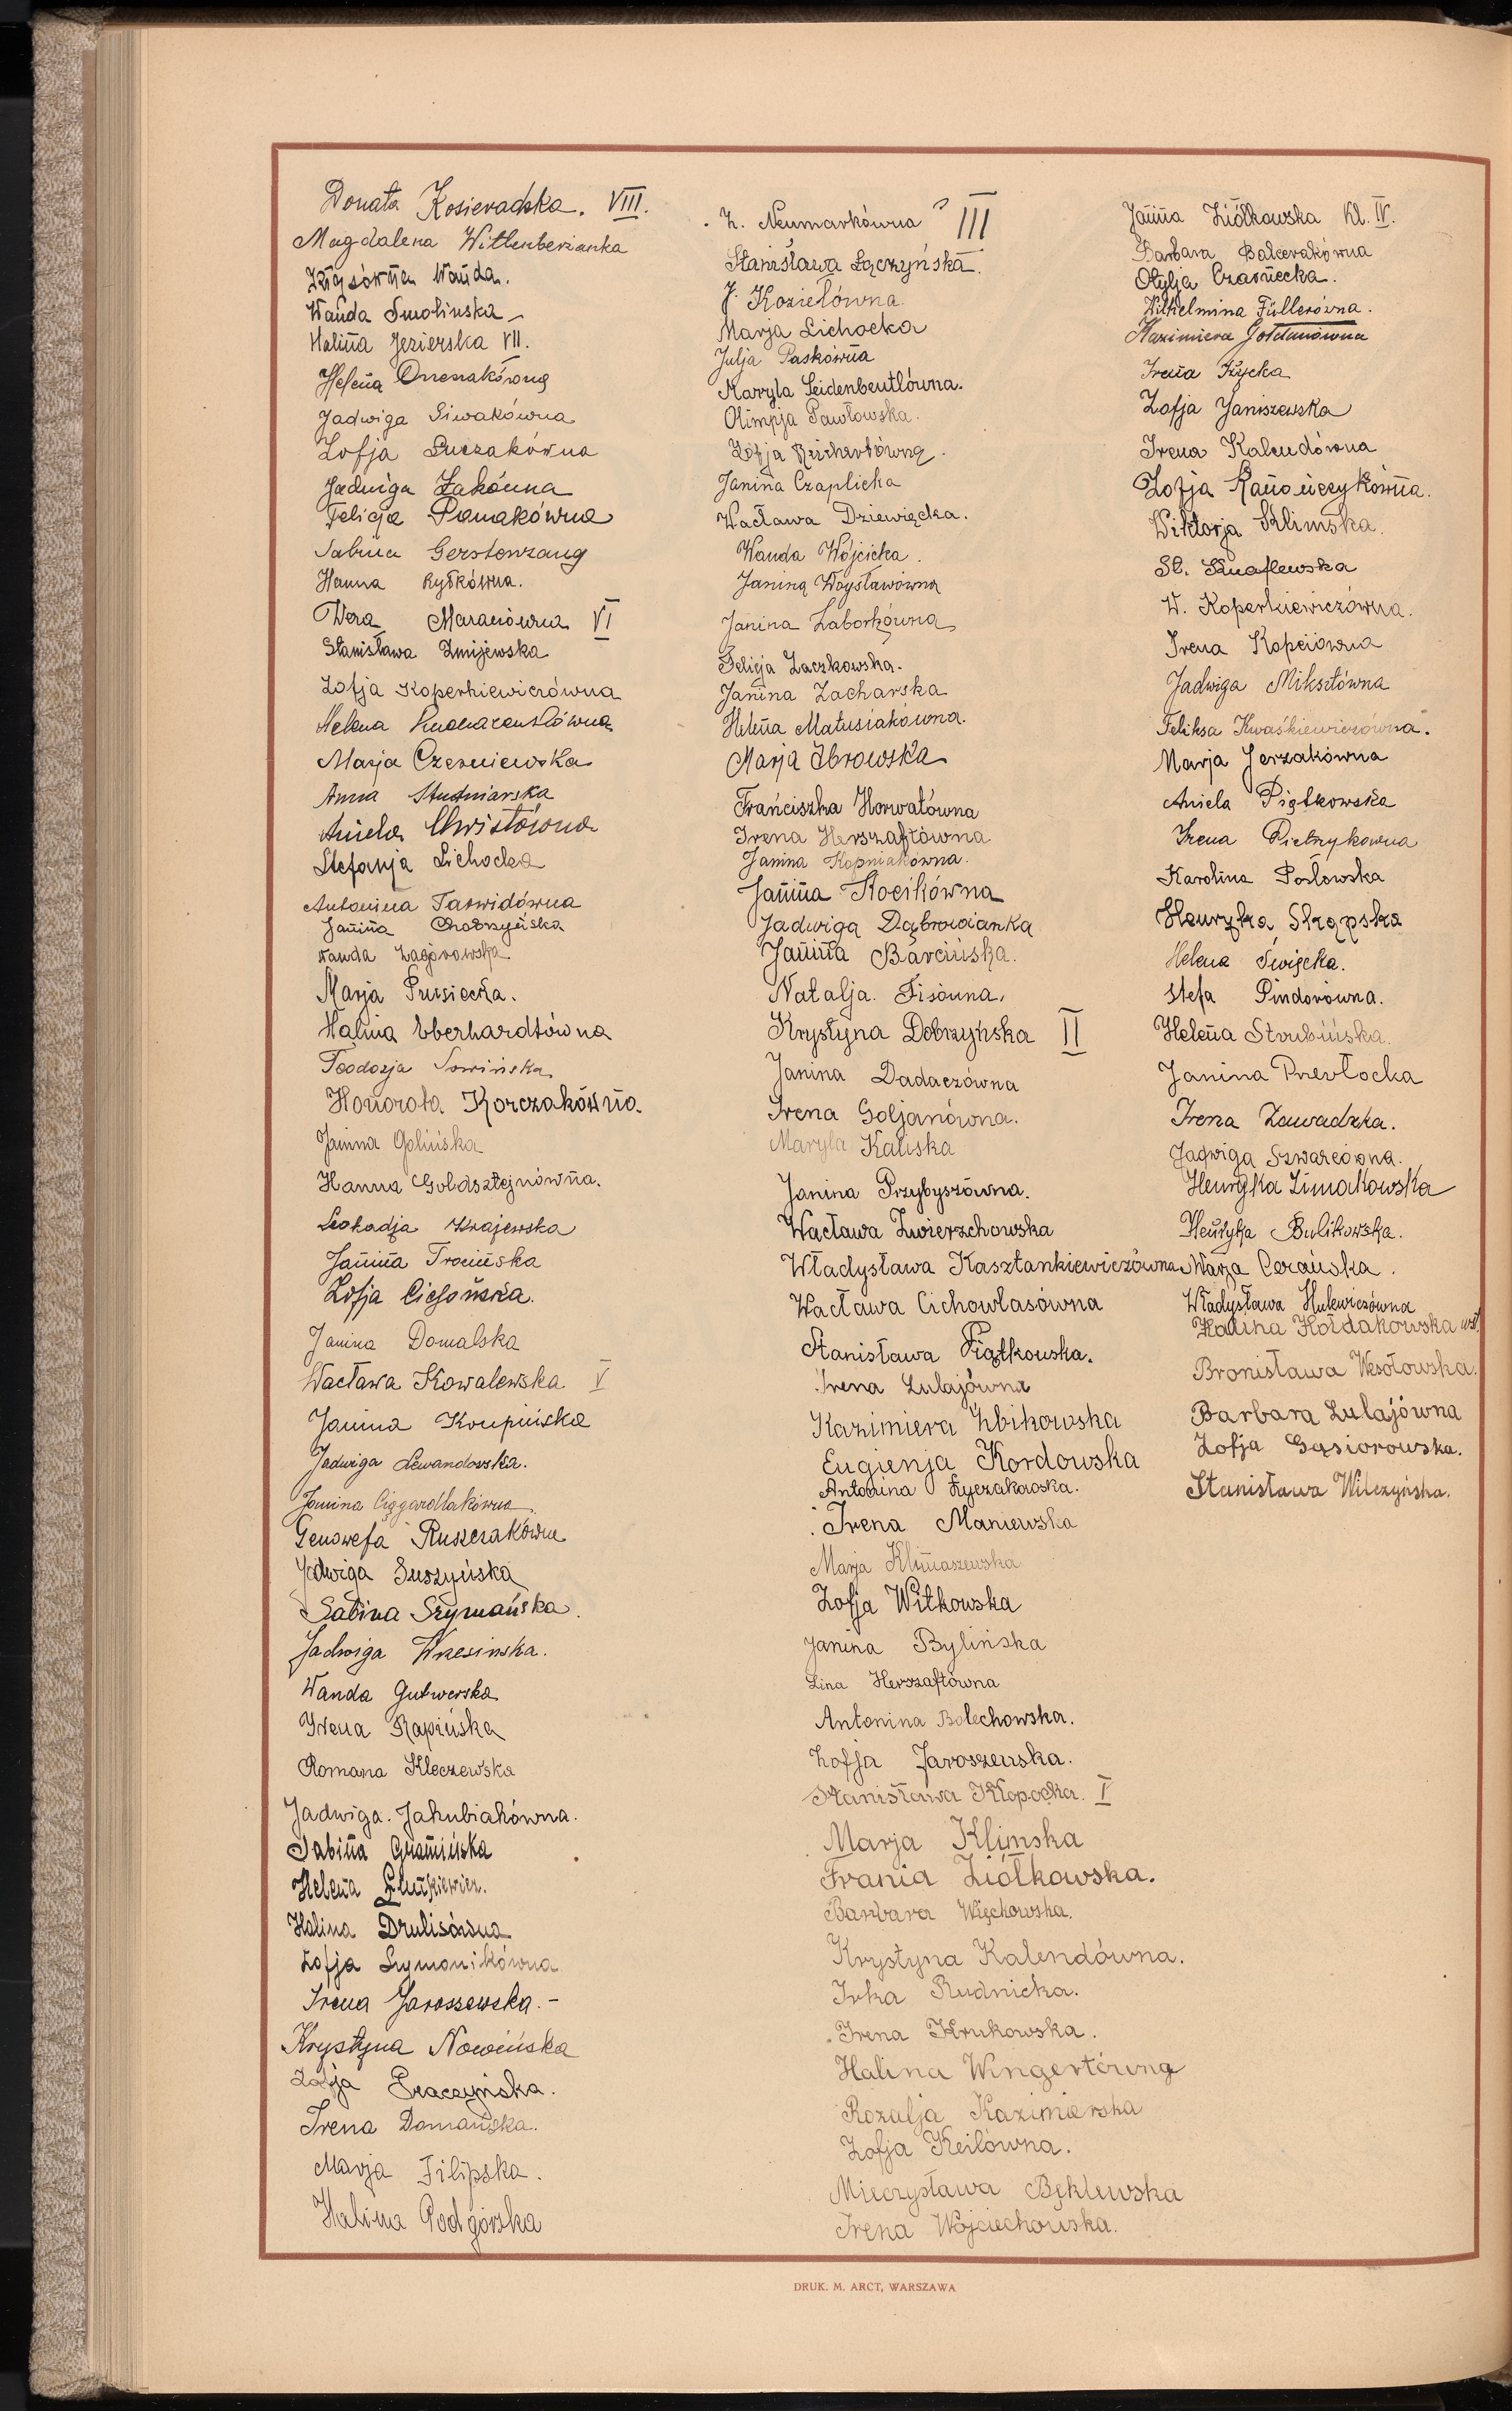 Donata Kosieradzka. VIII.
Magdalena Wittenberżanka
Wanda.
Wanda Smolinska
Halina Jezierska VII.
Helena
Jadwiga Siwakówna
Zofja Łuczakówna
Jadwiga Żakówna
Felicja Pamakówna
Sabina Gerstenzang
Hanna Rytkówna.
Wera VI
Stanisława Żmijewska
Zofja Koperkiewiczówna
Helena
Marja Czerniewska
Anna Studniarska
Aniela Chwistówna
Stefanja Lichocka
Antonina Tarwidówna
Janina Chobrzyńska
Wanda Zagórowska
Marja Prusiecka.
Halina Eberhardtówna
Teodozja Sowińska
Honorata Korczakówna.
Janina Golińska
Hanna Goldsztejnówna.
Leokadja Krajewska
Janina Trocińska
Zofja Ciesońska.
Janina Domalska
Wacława Kowalewska V
Janina Krupińska
Jadwiga Lewandowska.
Janina Cięgardlakówna
Genowefa Ruszczakówna
Jadwiga Suszyńska
Sabina Szymańska.
Jadwiga Wrzesinska.
Wanda Gutwerska
Irena Rapińska
Romana Kleczewska
Jadwiga. Jakubiakówna.
Sabina Gramińska
Helena
Halina Drulisówna
Zofja Szymonikówna
Irena Jaroszewska. -
Krystyna Nowińska
Zofja Graczyńska.
Irena Domańska.
Marja Filipska.
Halina Podgórska
Z. Neumarkówna III
Stanisława Łączyńska.
J. Koziełówna
Marja Lichocka
Julja Paskówna
Maryla Seidenbeutlówna.
Olimpja Pawłowska.
Zofja Reichartówna.
Janina Czaplicka
Wacława Dziewięcka.
Wanda Wójcicka.
Janina Woysławówna
Janina Zaborkówna
Felicja Laczkowska.
Janina Zacharska
Helena Matusiakówna.
Marja Ibrowska
Franciszka Horwatówna
Irena Herszaftówna
Janina Kopniakówna.
Janina Kocikówna
Jadwiga Dąbrowianka
Janina Barcińska.
Natalja. Fisówna.
Krystyna Dobrzyńska II
Janina Dadaczówna
Irena Goljanówna.
Maryla Kaliska
Janina Przybyszówna.
Wacława Zwierzchowska
Władysława Kasztankiewiczówna
Wacława Cichowlasówna
Stanisława Piątkowska.
Irena Lulajówna
Kazimiera Żbikowska
Eugienja Kordowska
Antonina Łyczakowska.
Irena Maniewska
Marja Klimaszewska
Zofja Witkowska
Janina Bylińska
Lina Herszaftówna
Antonina Bolechowska.
Zofja Jaroszewska.
Stanisława Kłopocka. I
Marja Klimska
Frania Ziółkowska.
Barbara Więchowska.
Krystyna Kalendówna.
Irka Rudnicka.
Irena Krukowska.
Halina Wingertówna
Rozalja Kazimierska
Zofja Keilówna.
Mieczysława Bęklewska
Irena Wojciechowska.
Janina Ziółkowska Kl. IV.
Barbara Balcerakówna
Otylja Czarnecka.
Wilhelmina Füllerówna.
Kazimiera Gołdanówna
Irena Iłżycka
Zofja Janiszewska
Irena Kalendówna
Zofja Kanończykówna.
Wiktorja Klimska.
St. Knaflewska
W. Koperkiewiczówna.
Irena Kopciówna
Jadwiga Miksztówna
Feliksa Kwaśkiewiczówna.
Marja Jerzakówna
Aniela Piątkowska
Irena Pietrzykowna
Karolina Posłowska
Henryka Skąpska
Helena Święcka.
Stefa Pindorówna.
Helena Strubińska.
Janina Prevłocka
Irena Zawadzka.
Jadwiga Szwarcówna.
Henryka Zimakowska
Henryka Bulikowska.
Marja Cerańska.
Władysława Hulewiczówna
Halina Hołdakowska wst.
Bronisława Wesołowska.
Barbara Lulajówna
Zofja Gąsiorowska.
Stanisława Wilczyńska.
DRUK. M. ARCT, WARSZAWA